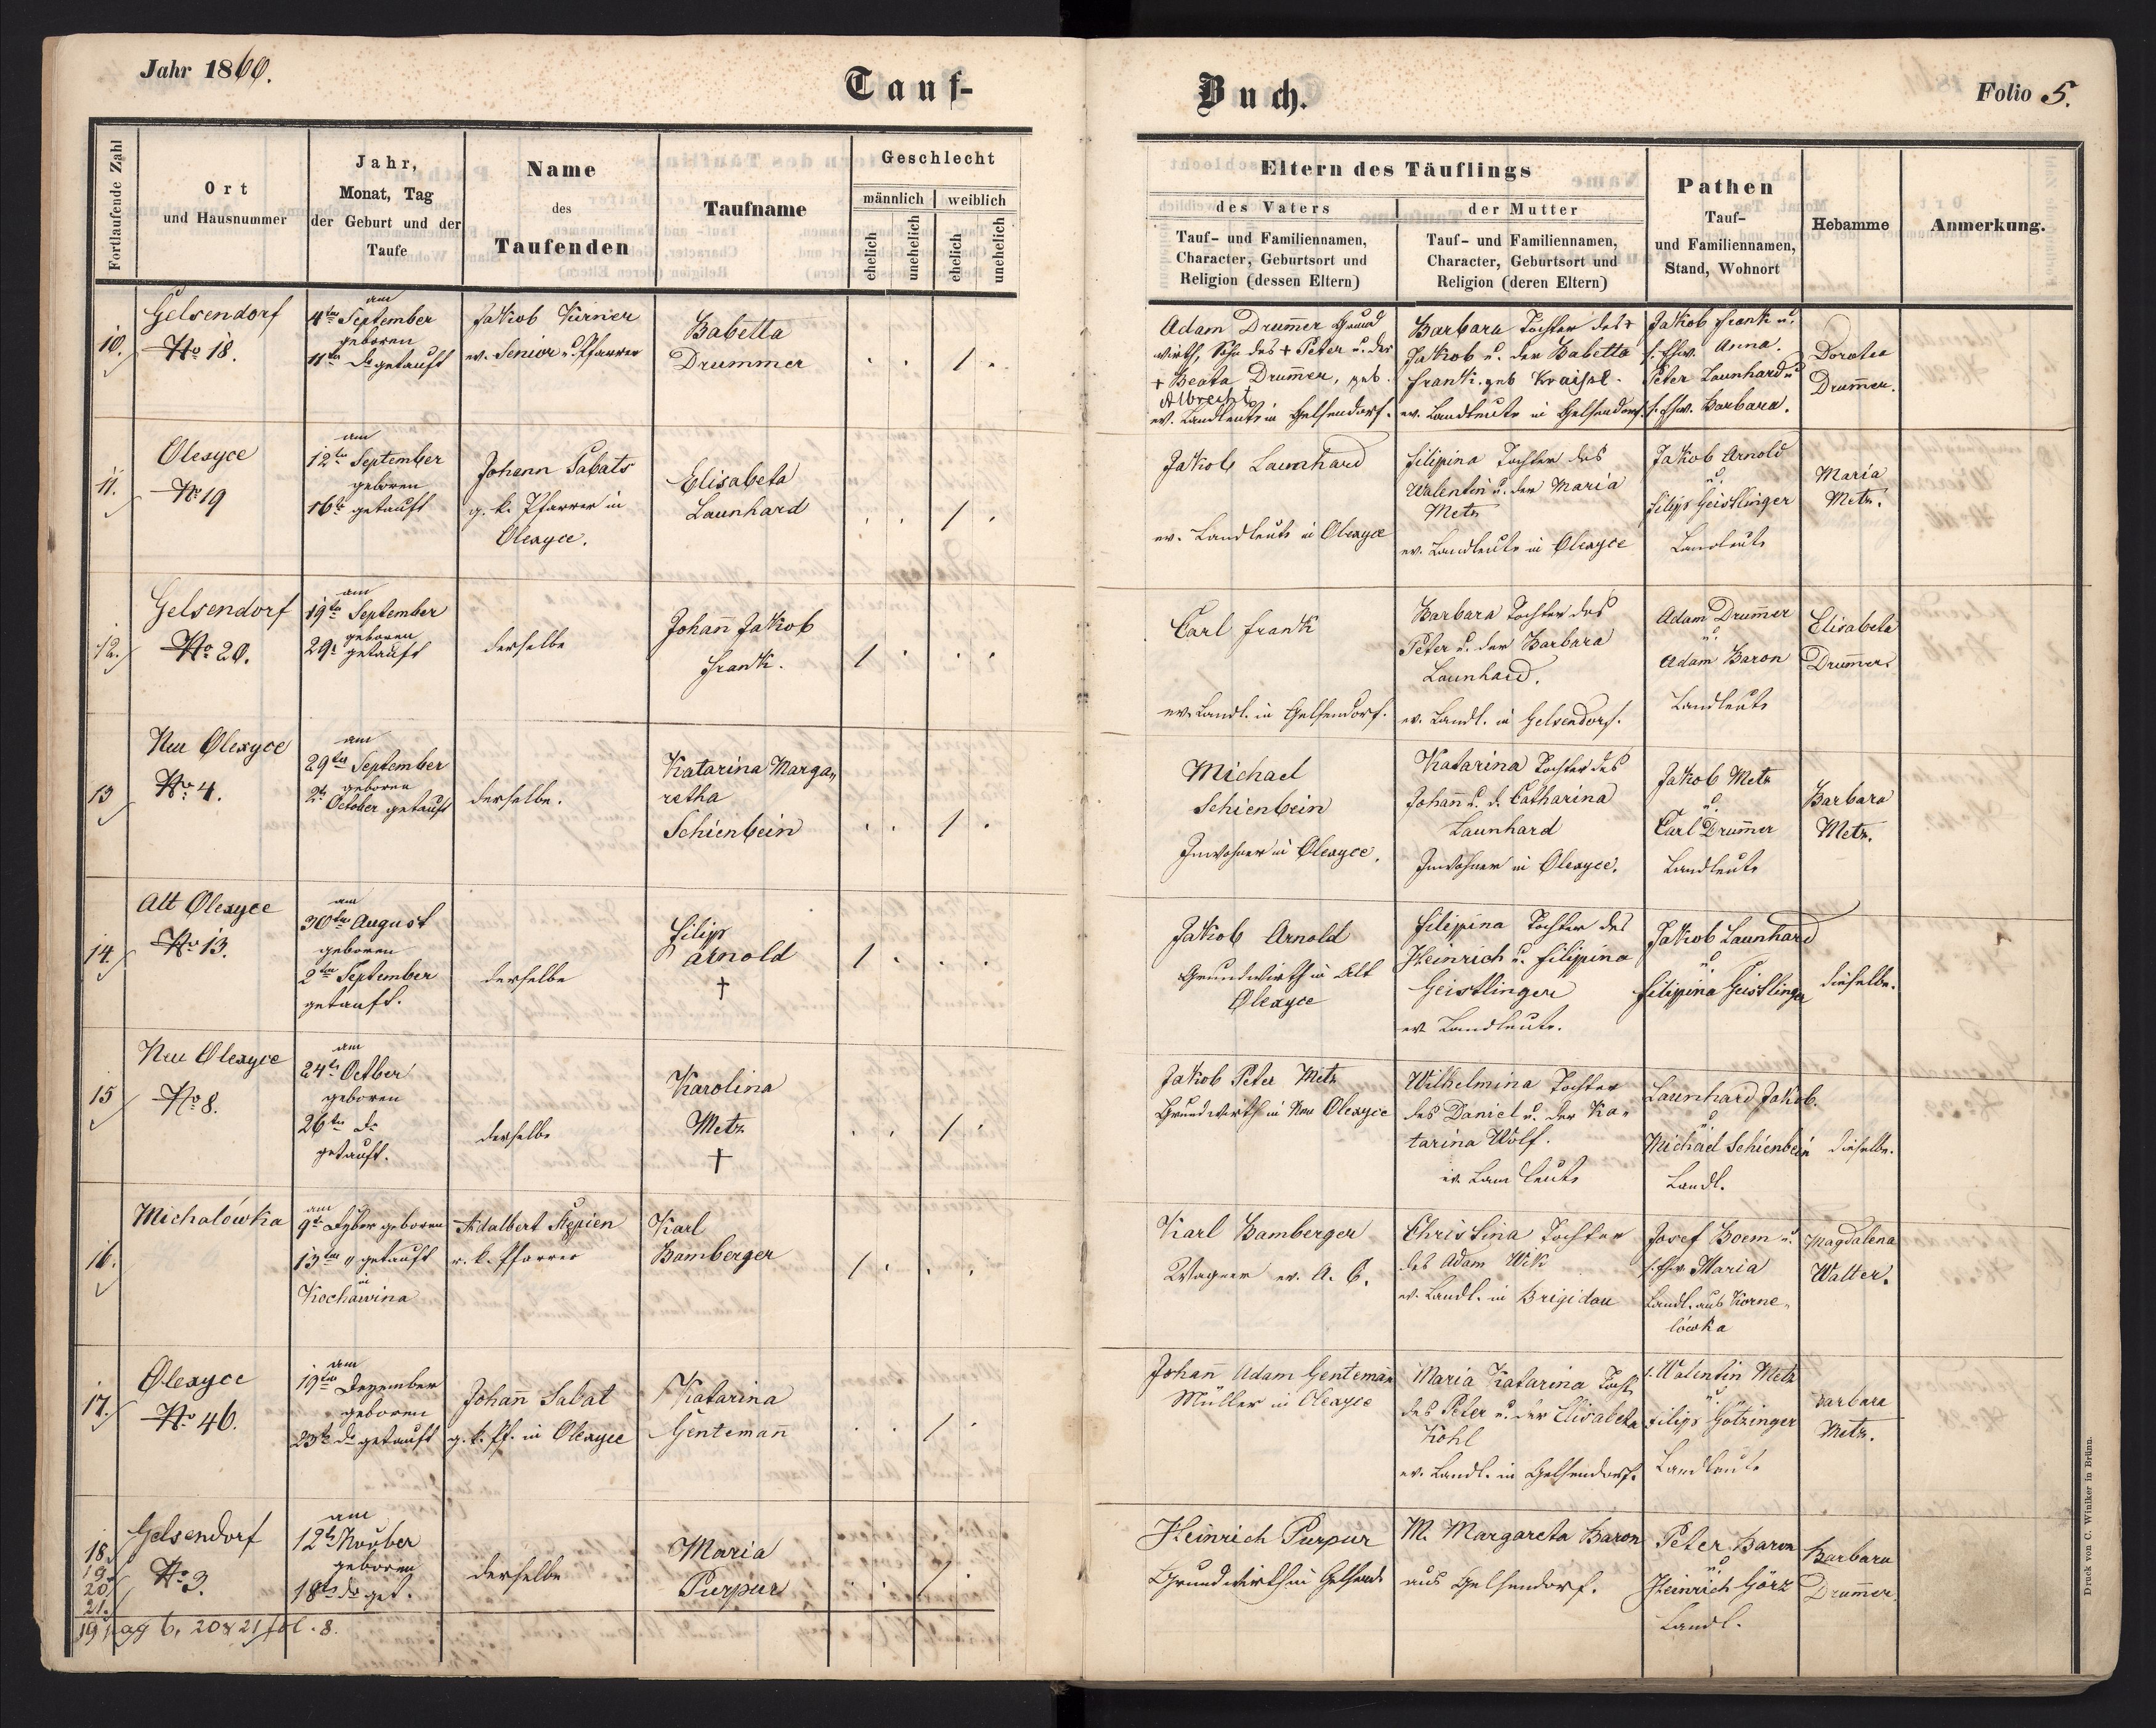 Jahr 1860.
Tauf-
Buch.
Folio 5.
Fortlaufende Zahl
Ort
und Hausnummer
Jahr,
Monat, Tag
der Geburt und der
Taufe
Name
des
Taufenden
Taufname
Geschlecht
männlich
weiblich
ehelich
unehelich
ehelich
unehelich
Eltern des Täuflings
des Vaters
Tauf- und Familiennamen,
Character, Geburtsort und
Religion (dessen Eltern)
der Mutter
Tauf- und Familiennamen,
Character, Geburtsort und
Religion (deren Eltern)
Pathen
Tauf-
und Familiennamen,
Stand, Wohnort
Hebamme
Anmerkung.
10.
Gelsendorf
No 18.
am
4ten September
geboren
11ten do getauft
Jakob Kürner
ev. Senior u. Pfarrer
Babetta
Drummer
1
Adam Drum̄er Grund
wirth, Sohn des + Peter u. der
+ Beata Drum̄er, geb.
Albrecht
ev. Landleute in Gelsendorf.
Barbara Tochter des +
Jakob u. der Babetta
Frank. geb Kraissl.
ev. Landleute in Gelsendorf.
Jakob Frank u.
s. Ehw. Anna.
Peter Launhard u
s. Ehw. Barbara.
Dorotea
Drum̄er.
11.
Olexyce
No 19
am
12te September
geboren
16te getauft
Johann Sabats
g. k. Pfarrer in
Olexyce.
Elisabeta
Launhard
1
Jakob Launhard
ev. Landleute in Olexyce
Filipina Tochter des
Valentin u. der Maria
Metz
ev. Landleute in Olexyce
Jakob Arnold
u.
Filipp Geistlinger
Landleute
Maria
Metz.
12.
Gelsendorf
No 20.
am
19te September
geboren
29. getauft
derselbe
Johan̄ Jakob
Frank.
1
Carl Frank
ev. Landl. in Gelsendorf.
Barbara Tochter des
Peter u. der Barbara
Launhard.
ev. Landl. in Gelsendorf.
Adam Drum̄er
u.
Adam Baron
Landleute
Elisabeta
Drum̄er.
13
Neu Olexyce
No 4.
am
29ten September
geboren
2te October getauft
derselbe.
Katarina Marga„
retha
Schienbein
1
Michael
Schienbein
Inwohner in Olexyce.
Katarina Tochter des
Johan̄ u. d. Catharina
Launhard
Inwohner in Olexyce.
Jakob Metz
u.
Carl Drum̄er
Landleute
Barbara
Metz.
14.
Alt Olexyce
No 13.
am
30ten August
geboren
2ten September
getauft.
derselbe
Filipp
Arnold
†
1
Jakob Arnold
Grundwirth in Alt
Olexyce
Filippina Tochter des
Heinrich u. Filippina
Geistlinger
ev. Landleute.
Jakob Launhard
u.
Filippina Geistlinger
dieselbe.
15
Neu Olexyce
No 8.
am
24te Octber
geboren
26ten do
getauft.
derselbe
Karolina
Metz
†
1
Jakob Peter Metz
Grundwirth in Neu Olexyce
Wilhelmina Tochter
des Daniel u. der Ka„
tarina Wolf.
ev. Landleute
Launhard Jakob.
u
Michael Schienbein
Landl.
dieselbe.
16.
Michalówka
am
9te Dzber geboren
13ten „ getauft
in
Kochawina
Adalbert Stępien
r. k. Pfarrer
Karl
Bamberger
1
Karl Bamberger
Wagner ev. A. C.
Christina Tochter
des Adam Wik
ev. Landl. in Brigidau
Josef Boem u.
s. Ehw Maria
Landl. aus Korne„
lówka
Magdalena
Walter.
17.
Olexyce
No 46.
am
19ten Dezember
geboren
23te do getauft
Johan̄ Sabat
g. k. Pf. in Olexyce
Katarina
Genteman
1
Johan̄ Adam Genteman̄
Müller in Olexyce
Maria Katarina Toch.
des Peter u. der Elisabeta
Kohl
ev. Landl. in Gelsendorf.
Valentin Metz
u.
Filipp Götzinger
Landleute
Barbara
Metz.
18.
19.
20
21.
Gelsendorf
No 3.
am
12te Novber
geboren
18te do get.
derselbe
Maria
Purpur
1
Heinrich Purpur
Grundwirth in Gelsend.
M. Margareta Baron
aus Gelsendorf.
Peter Baron
u
Heinrich Görz
Landl.
Barbara
Drum̄er.
19 pag 6, 20 & 21 fol. 8.
Druck von C. Winiker in Brünn.